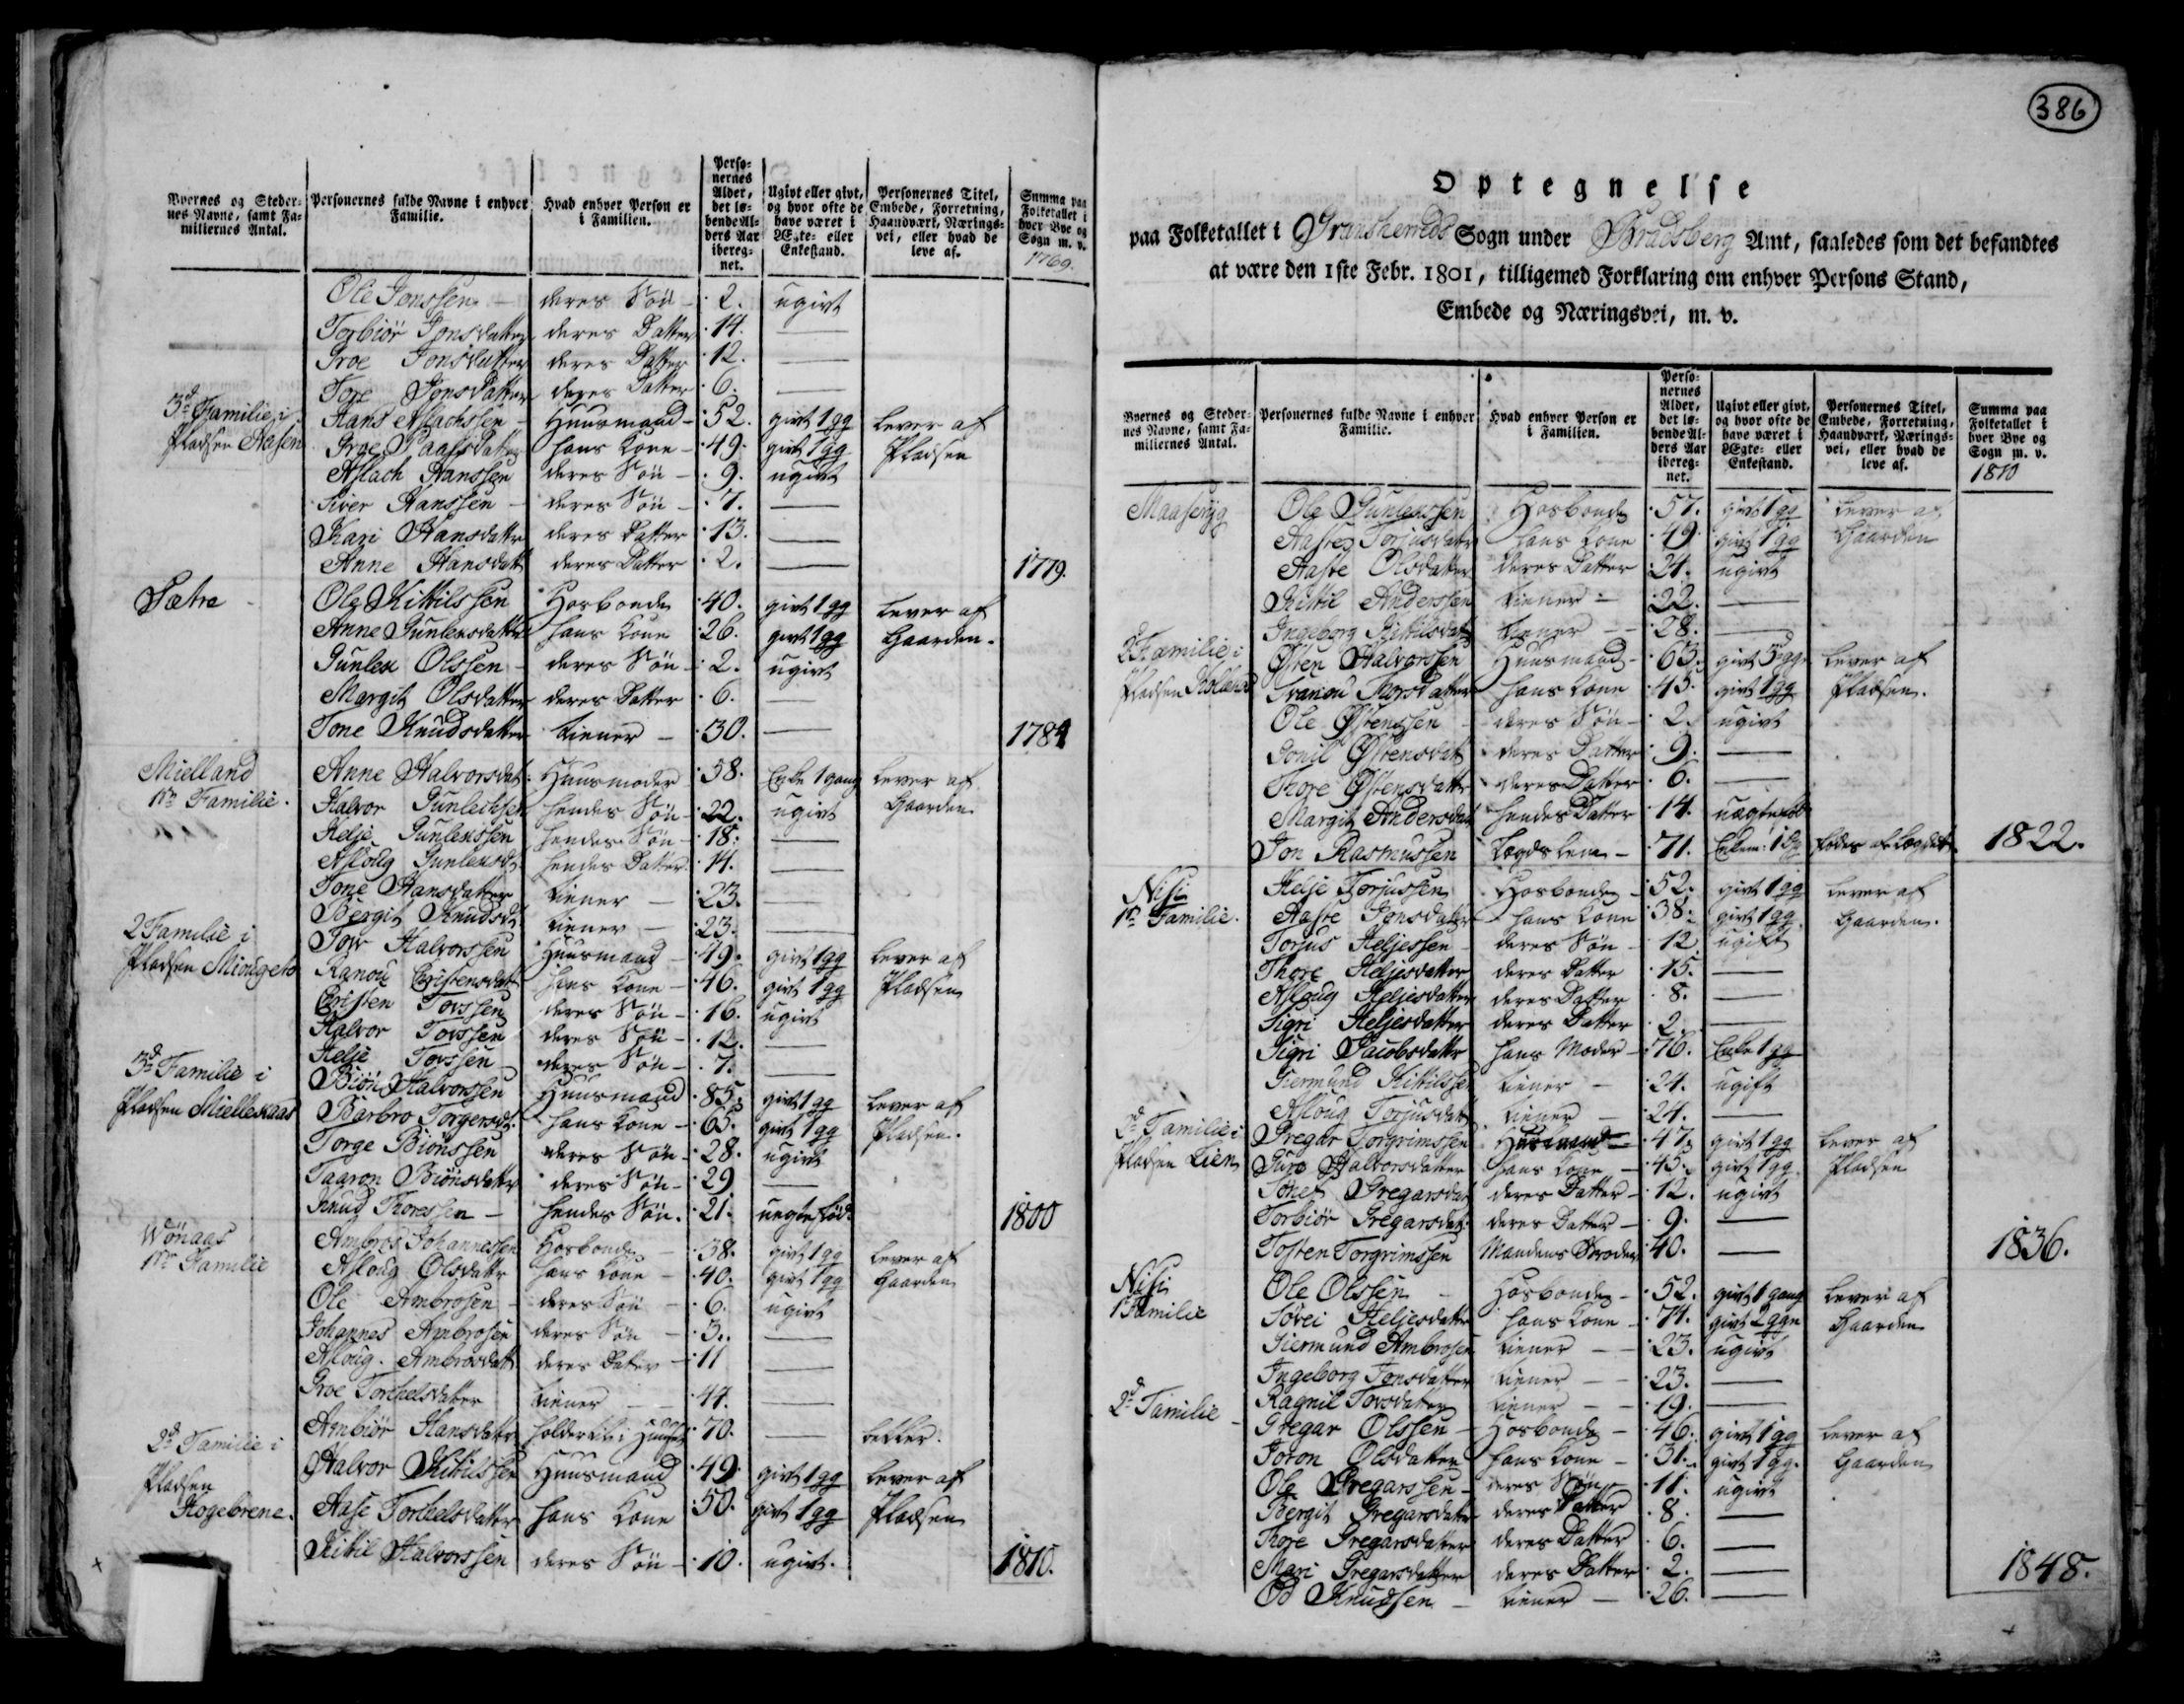 Byernes og Steder-
nes Navne, samt Fa-
miliernes Antal.
Personernes fulde Navne i enhver
Familie.
Hvad enhver Person er
i Familien.
Perso-
nernes
Alder,
det lø-
bende Al-
ders Aar
ibereg-
net.
Ugivt eller givt,
og hvor ofte de
have været i
Ægte- eller
Enkestand.
Personernes Titel,
Embede, Forretning,
Haandværk, Nærings-
vei, eller hvad de
leve af.
Summa paa
Folketallet i
hver Bye og
Sogn m. v.
1769.
Ole Jonssen - deres Søn - 2. ugivt
Torbiør Jonsdatter deres Datter 14. —
Groe Jonsdatter deres Datter 12. —
Tore Jonsdatter deres Datter 6. —
3d Familie i Hans Aslachssen - Huusmand - 52. givt 1 gg lever af
Pladsen Aasen Groe Paalsdatter hans Kone - 49. givt 1 gg Pladsen
Aslach Hanssen deres Søn - 9. ugivt
Siver Hanssen - deres Søn - 7. —
Kari Hansdatter deres Datter 13. —
Anne Hansdatt deres Datter 2. — 1779.
Sætre - Ole Kittilssen Hosbonde 40. givt 1 gg lever af
Anne Gunleusdatter hans Kone 26. givt 1 gg Gaarden.
Gunleu Olssen - deres Søn - 2. ugivt
Margit Olsdatter deres Datter 6. —
Tone Knudsdatter tiener - 30. — 1784
Mielland Anne Halvorsdat. Huusmoder 58. Enke 1 gang lever af
1te Familie. Halvor Gunleikssen hendes Søn - 22. ugivt Gaarden
Helje Gunleussen hendes Søn - 18. —
Asloug Gunleusd. hendes Datter 14. —
Tone Hansdatter tiener — 23. —
Bergit Knudsd. tiener — 23. —
2 Familie i Tov Halvorssen Huusmand - 49. givt 1 gg lever af
Pladsen Miougeto Ranou Cristensdatt hans Kone - 46. givt 1 gg Pladsen
Cristen Tovssen deres Søn - 16. ugivt
Halvor Tovssen deres Søn - 12. —
Helje Tovssen - deres Søn - 7. —
3d Familie i Biøn Halvorssen Huusmand 85. givt 1 gg lever af
Pladsen Mielleskaas Barbro Torgersd. hans Kone - 65. givt 1 gg Pladsen.
Torge Biønssen deres Søn - 28. ugivt
Taaron Biønsdatter deres Søn - 29 —
Knud Thoressen - hendes Søn. 21. uegte fød. 1800
Wønaas Ambros Johannessen Hosbonde - 38. givt 1 gg lever af
1te Familie Asloug Olsdattr hans Kone - 40. givt 1 gg Gaarden
Ole Ambrosen - deres Søn - 6. ugivt
Johannes Ambrosen deres Søn - 3. —
Asloug. Ambrosdatt deres Datter - 11 —
Groe Torkelsdatter tiener — 44. —
2d Familie i Ambiør Hansdattr holder til i Huuset 70. — betler.
Pladsen Halvor Kittilssen Huusmand 49. givt 1 gg lever af
Hogebrene. Aase Torkelsdatter hans Kone 50. givt 1 gg Pladsen
Kittil Halvorssen deres Søn - 10. ugivt. 1810.
386
Optegnelse
paa Folketallet i Gransherreds Sogn under Bradsberg Amt, saaledes som det befandtes
at være den 1ste Febr. 1801, tilligemed Forklaring om enhver Persons Stand,
Embede og Næringsvei, m. v.
Byernes og Steder-
nes Navne, samt Fa-
miliernes Antal.
Personernes fulde Navne i enhver
Familie.
Hvad enhver Person er
i Familien.
Perso-
nernes
Alder,
det lø-
bende Al-
ders Aar
ibereg-
net.
Ugivt eller givt,
og hvor ofte de
have været i
Ægte- eller
Enkestand.
Personernes Titel,
Embede, Forretning,
Haandværk, Nærings-
vei, eller hvad de
leve af.
Summa paa
Folketallet i
hver Bye og
Sogn m. v.
1810
Ole Gunleussen Hosbonde 57. givt 1 gg lever af
Aaste Torjusdatr hans Kone 49. givt 1 gg Gaarden
Aaste Olsdatter deres Datter 24. ugivt
Kittil Anderssen tiener - 22. —
Ingeborg Kittilsdatt tiener — 28. —
2d Familie i Østen Halvorssen Huusmand - 63. givt 3 gg. lever af
Pladsen Svanou Thorsdatter hans Kone 45. givt 1 gg Pladsen.
Ole Østenssen - deres Søn - 2. ugivt
Gonil Østensdat deres Datter 9. —
Thore Østensdattr deres Datter 6. —
Margit Andersdat hendes Datter 14. uægte
Jon Rasmussen Lægdslem - 71. Enkem. 1 gg fødes af Lægdet. 1822.
Nisi Helje Torjussen Hosbonde - 52. givt 1 gg lever af
1te Familie. Aaste Jonsdatter hans Kone 38. givt 1 gg. Gaarden.
Torjus Heljessen - deres Søn - 12 ugift
Thore Heljesdatter deres Datter 15. —
Asloug Heljesdatter deres Datter 8. —
Sigri Heljesdatter deres Datter 2. —
Sigri Jacobsdattr hans Moder - 76. Enke 1 gg
Giermund Kittilssen tiener - 24. ugift
Asloug Torjusdatt tiener — 24. —
2d Familie i Gregar Torgrimssen Huusmand - 47. givt 1 gg lever af
Pladsen Lien Guro Halvorsdatter hans Kone - 45. givt 1 gg. Pladsen
Gregarsdat deres Datter - 12. ugivt
Torbiør Gregarsdat. deres Datter - 9. —
Tosten Torgrimssen Mandens Broder 40. — 1836.
Nisi Ole Olssen - Hosbonde - 52. givt 1 gang lever af
1te Familie Søvei Heljesdatter hans Kone - 74. givt 2 ggr Gaarden
Giermund Ambrosen tiener — 23. ugivt
Ingeborg Jonsdatter tiener — 23. —
Ragnil Tovsdatter tiener — 19. —
2d Familie - Gregar Olssen - Hosbonde - 46. givt 1 gg lever af
Joron Olsdatter hans Kone - 31. givt 1 gg. Gaarden
Ole Gregarssen - deres Søn 11. ugivt
Bergit Gregarsdattr deres Datter 8. —
Thore Gregarsdatter deres Datter 6. —
Mari Gregarsdatter deres Datter 2. — 1848.
Od Knudssen - tiener — 26. —